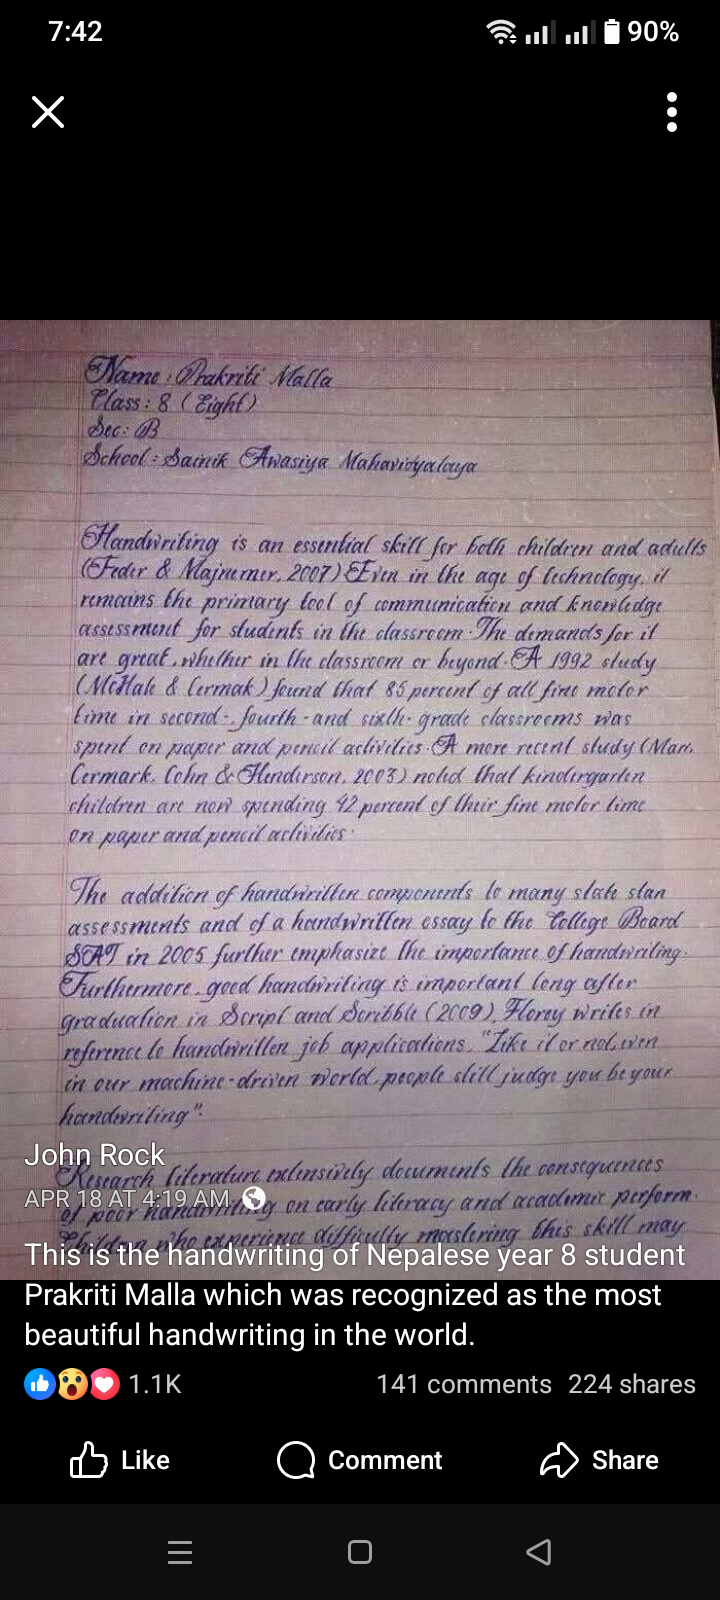 7:42
90%
Name : Prakriti Malla
Class : 8 ( Eight )
Sec : B
School : Sainik Awasiya Mahavidyalaya
Handwriting is an essential skill for both children and adults
(Feder & Majnemer, 2007) Even in the age of technology, it
remains the primary tool of communication and knowledge
assessment for students in the classroom. The demands for it
are great, whether in the classroom or beyond. A 1992 study
(McHale & Cermak) found that 85 percent of all fine motor
time in second-, fourth-and sixth-grade classrooms was
spent on paper and pencil activities. A more recent study (Marr,
Cermark, Cohn & Henderson, 2003) noted that kindergarten
children are now spending 42 percent of their fine motor time
on paper and pencil activities.
The addition of handwritten components to many state stan
assessments and of a handwritten essay to the College Board
SAT in 2005 further emphasize the importance of handwriting.
Furthermore, good handwriting is important long after
graduation in Script and Scribble (2009), Florey writes in
reference to handwritten job applications, "Like it or not, even
in our machine-driven world, people still judge you be your
handwriting".
John Rock
Research literature extensively documents the consequences
APR 18 AT 4:19 AM
of poor handwriting on early literacy and academic perform.
Children who experience difficulty mastering this skill may
This is the handwriting of Nepalese year 8 student
Prakriti Malla which was recognized as the most
beautiful handwriting in the world.
1.1K
141 comments 224 shares
Like
Comment
Share